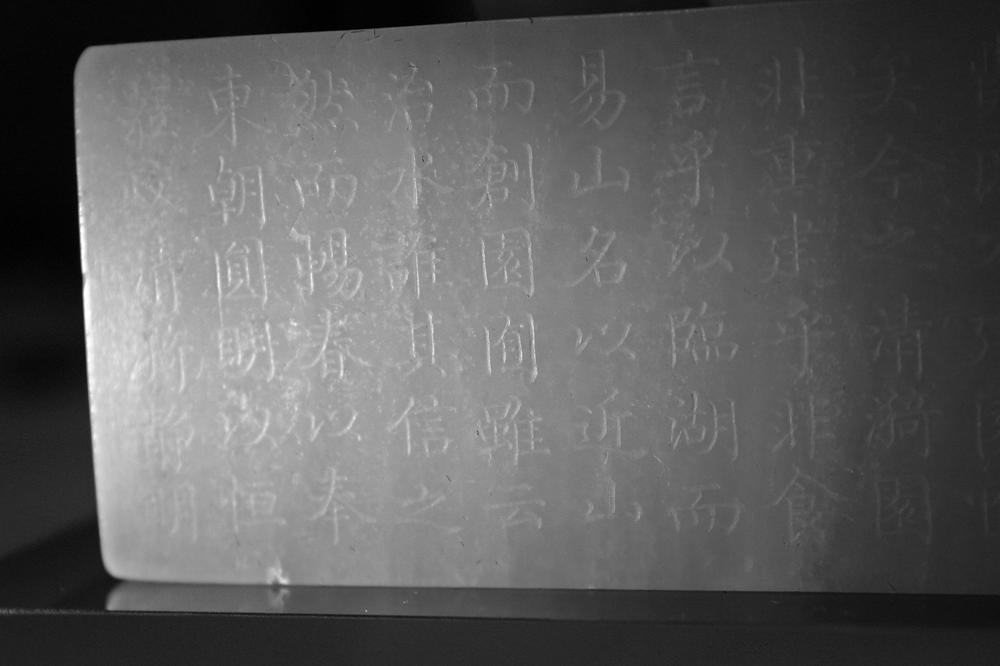 矣今之清漪園
非重建乎非食
言乎以臨湖而
易山名以近山
而創園囿雖云
治水誰其信之
然而暢春以奉
東朝圓明以恒
蒞政清漪靜明